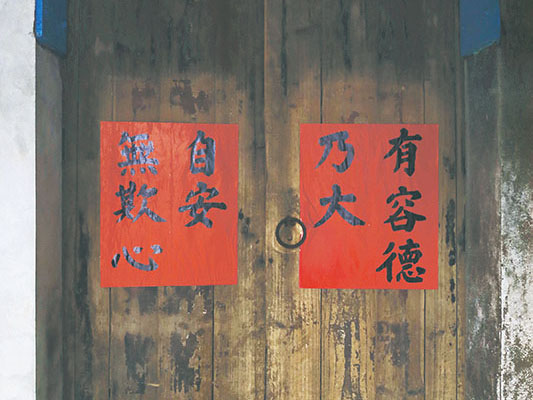 有容德
乃大
無欺心
自安